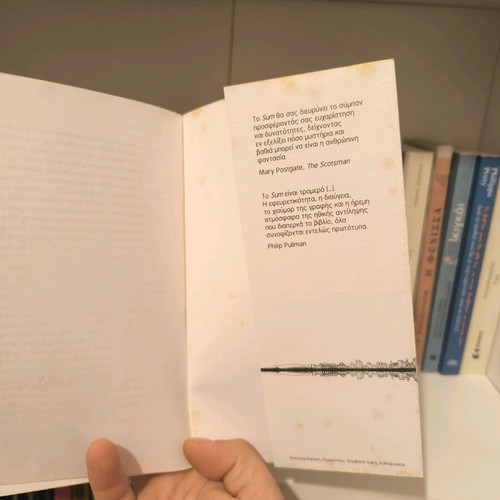 Το Sum θα σας διευρύνει το σύμπαν
προσφέροντάς σας ευχαρίστηση
και δυνατότητες, δείχνοντας
εν εξελίξει πόσο μυστήρια και
βαθιά μπορεί να είναι η ανθρώπινη
φαντασία.
Mary Postgate, The Scotsman
Το Sum είναι τρομερό [..].
Η εφευρετικότητα, η διαύγεια,
το χιούμορ της γραφής και η ήρεμη
ατμόσφαιρα της ηθικής αντίληψης
που διαπερνά το βιβλίο, όλα
συναρμόζονται εντελώς πρωτότυπα.
Philip Pullman
Η ΦΟΝΙΣΣΑ
Ικιγκάι